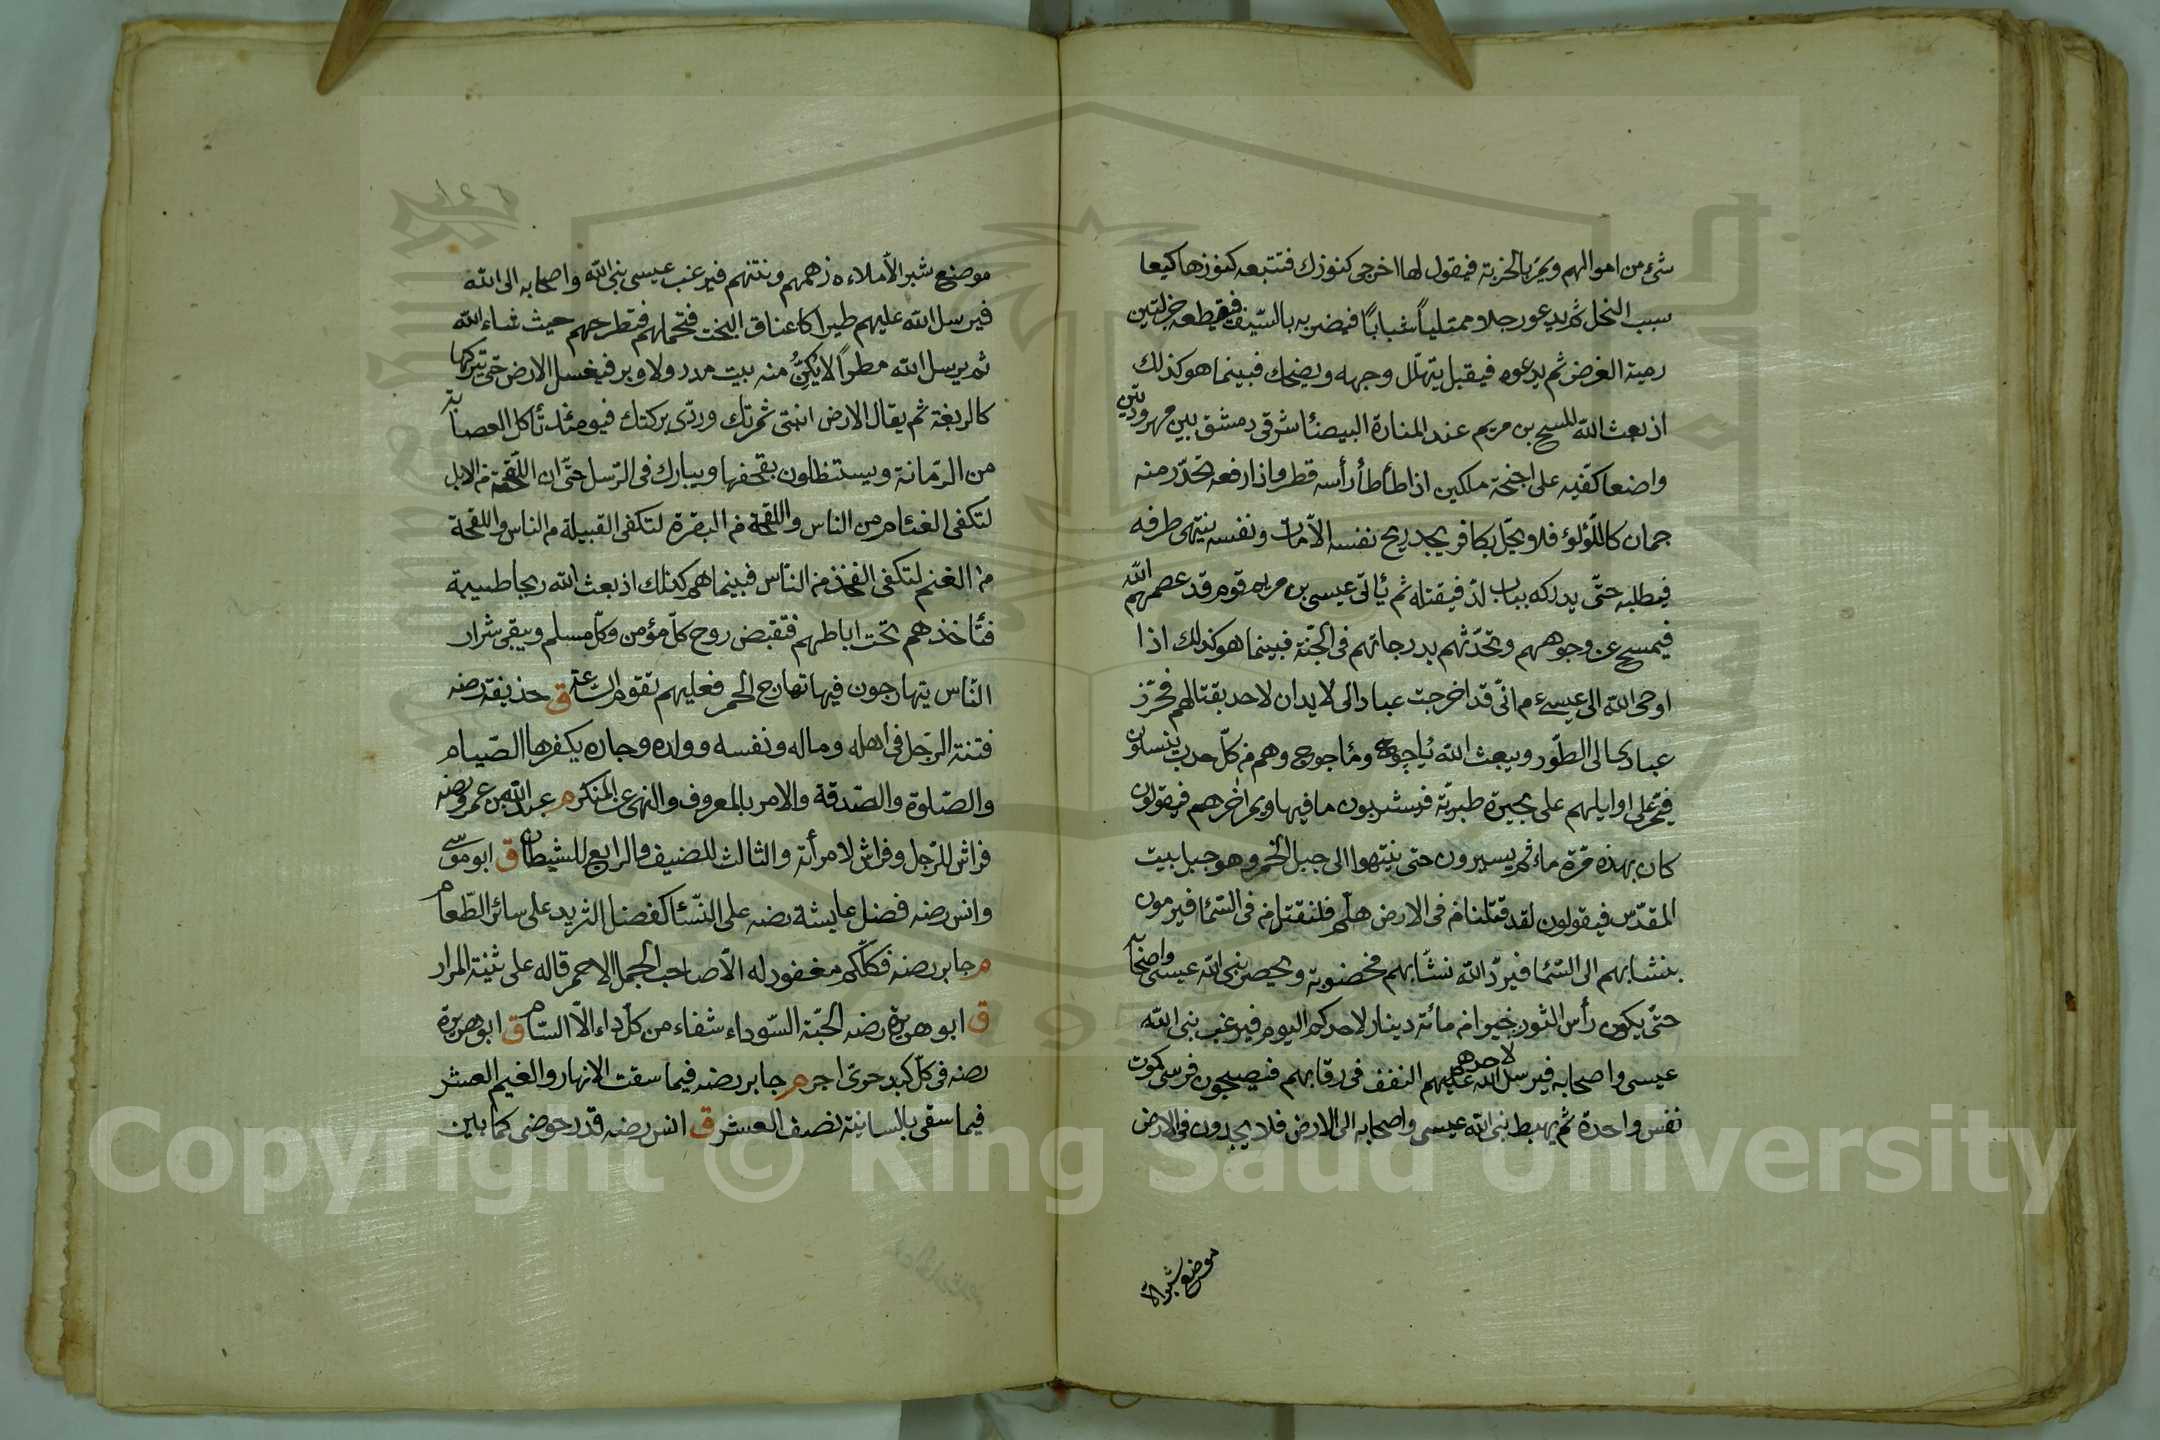 شئ من اموالهم ويمر بالخربة فيقول لها اخرجى كنوزك فتتبعه كنوزها كيعا
سبب النحل ثم يدعو رجلا ممتلياً شباباً فيضربه بالسّيف فيقطعه جزلتين
رمية الغرض ثم يدعوه فيقبل يتهلّل وجهه ويضحك فبينما هو كذلك
اذ بعث الله المسيح بن مريم عند المنارة البيضئا شرقى دمشق بين مهرودتين
واضعا كفّيه على اجنحة ملكين اذا طأطأ رأسه قطر واذا رفعه تحدّر منه
جمان كاللّؤلؤ فلا يحلّ بكافر يجد ريح نفسه الّا مات ونفسه ينتهى طرفه
فيطلبه حتّى يدركه بباب لدّ فيقتله ثم يأتى عيسى بن مريم قوم قد عصمهم الله
فيمسح عن وجوههم ويحدّثهم بدرجاتهم فى الجنّة فبينما هو كذلك اذا
اوحى الله الى عيسى ء م انّى قد اخرجت عبادا لى لا يدان لاحد بقتالهم فحرّز
عبادى الى الطّور ويبعث الله يأجوج ومأجوج وهم من كلّ حدب ينسلون
فيمرّ على اوايلهم على بحيرة طبريّة فيشربون ما فيها ويمر اخرهم فيقولون
كان بهذه مرّة ماء ثم يسيرون حتى ينتهوا الى جبل الخمر وهو جبل بيت
المقدّس فيقولون لقد قتلنا من فى الارض هلّم فلنقتل من فى السّما فيرمون
بنشابهم الى السّما فيردّ الله نشّابهم مخضوبة ويحصر نبى الله عيسى واصحابه
حتّى يكون رأس الثور خيرا من مائة دينار لاحدكم اليوم فيرغب نبى الله
لاحدهم
عيسى واصحابه فيرسل الله عليهم النغف فى رقابهم فيصبحون فرسى كموت
نفس واحدة ثم يهبط نبى الله عيسى واصحابه الى الارض فلا يجدون فى الارض
موضع شبر الّا
موضع شبر الّا ملاءه زهمهم ونتنهم فيرغب عيسى نبى الله واصحابه الى الله
فيرسل الله عليهم طيرا كاعناق البخت فتحملهم فتطرحهم حيث شاء الله
ثم يرسل الله مطراً لا يكنّ منه بيت مدر ولا وبر فيغسل الارض حتى يتركها
كالزلفة ثم يقال الارض انبتى ثمرتك وردّى بركتك فيومئذ تأكل العصابه
من الرّمانة ويستظلون بقحفها ويبارك فى الرّسل حتّى ان اللّقحة من الابل
لتكفى الفئام من الناس واللقحة من البقرة لتكفى القبيلة من الناس واللقحة
من الغنم لتكفى الفخذ من النّاس فبينما هم كذلك اذ بعث الله ريحا طيبة
فتأخذهم تحت اباطهم فتقبض روح كلّ مؤمن وكلّ مسلم ويبقى شرار
النّاس يتهارجون فيها تهارج الحمر فعليهم تقوم السّاعة ق حذيفة رضه
فتنة الرّجل فى اهله وماله ونفسه وولده وجاره يكفرها الصّيام
والصّلوة والصّدقة والامر بالمعروف والنهى عن المنكر م عبد الله بن عمرو رضه
فراش للرّجل وفراش لامرأته والثالث للضيف والرابع للشيطان ق ابو موسى
وانس رضه فضل عايشة رضه على النّسئا كفضل الثريد على سائر الطّعام
م جابر رضه فكلّكم مغفور له الّا صاحب الجمل الاحمر قاله على ثنيّة المرار
ق ابو هريرة رضه الحبّة السّوداء شفاء من كلّ داء الّا السّام ق ابو هريرة
رضه فى كلّ كبد حرىّ اجر م جابر رضه فيما سقت الانهار والغيم العشر
فيما سقى بالسانية نصف العشر ق انس رضه قدر حوضى كما بين
Copyright © King Saud University